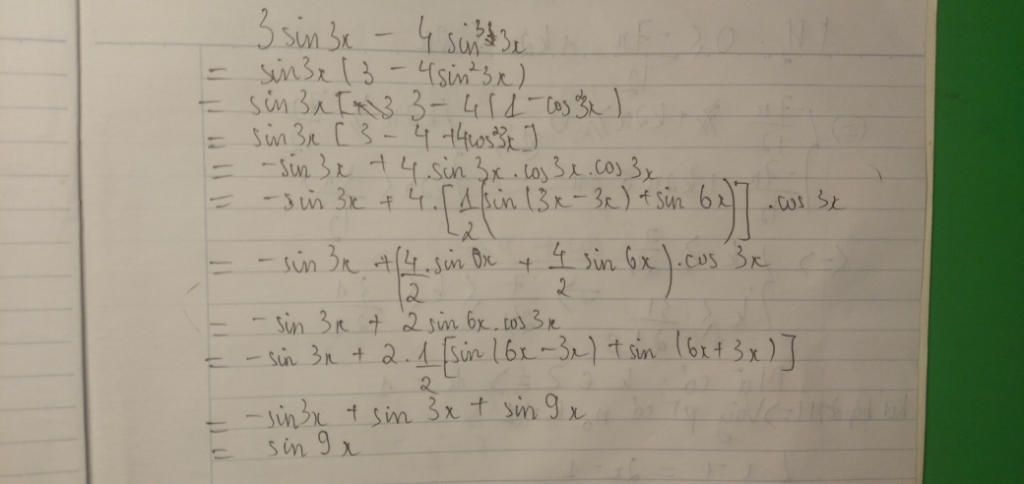 3 sin 3x - 4 sin³ 3x
= sin 3x (3 - 4 sin² 3x)
= sin 3x [3 - 4(1 - cos² 3x)
= sin 3x [3 - 4 + 4cos² 3x]
= -sin 3x + 4.sin 3x.cos 3x.cos 3x
= -sin 3x + 4.[1/2(sin(3x - 3x) + sin 6x)].cos 3x
= -sin 3x + (4/2.sin 0x + 4/2 sin 6x).cos 3x
= -sin 3x + 2 sin 6x.cos 3x
= -sin 3x + 2.1/2[sin(6x - 3x) + sin (6x + 3x)]
= -sin 3x + sin 3x + sin 9x
= sin 9x